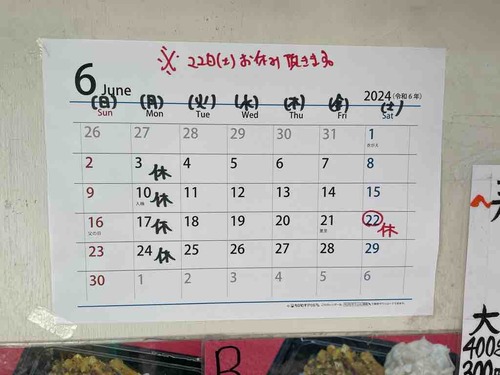 ※ 22日(土)お休み頂きます。
6 June
2024(令和6年)
(日) (月) (火) (水) (木) (金) (土)
Sun Mon Tue Wed Thu Fri Sat
26 27 28 29 30 31 1
2 3 休 4 5 6 7 8
9 10 休 11 12 13 14 15
入梅
16 17 休 18 19 20 21 22 休
父の日 夏至
23 24 休 25 26 27 28 29
30 1 2 3 4 5 6
大
400g
300